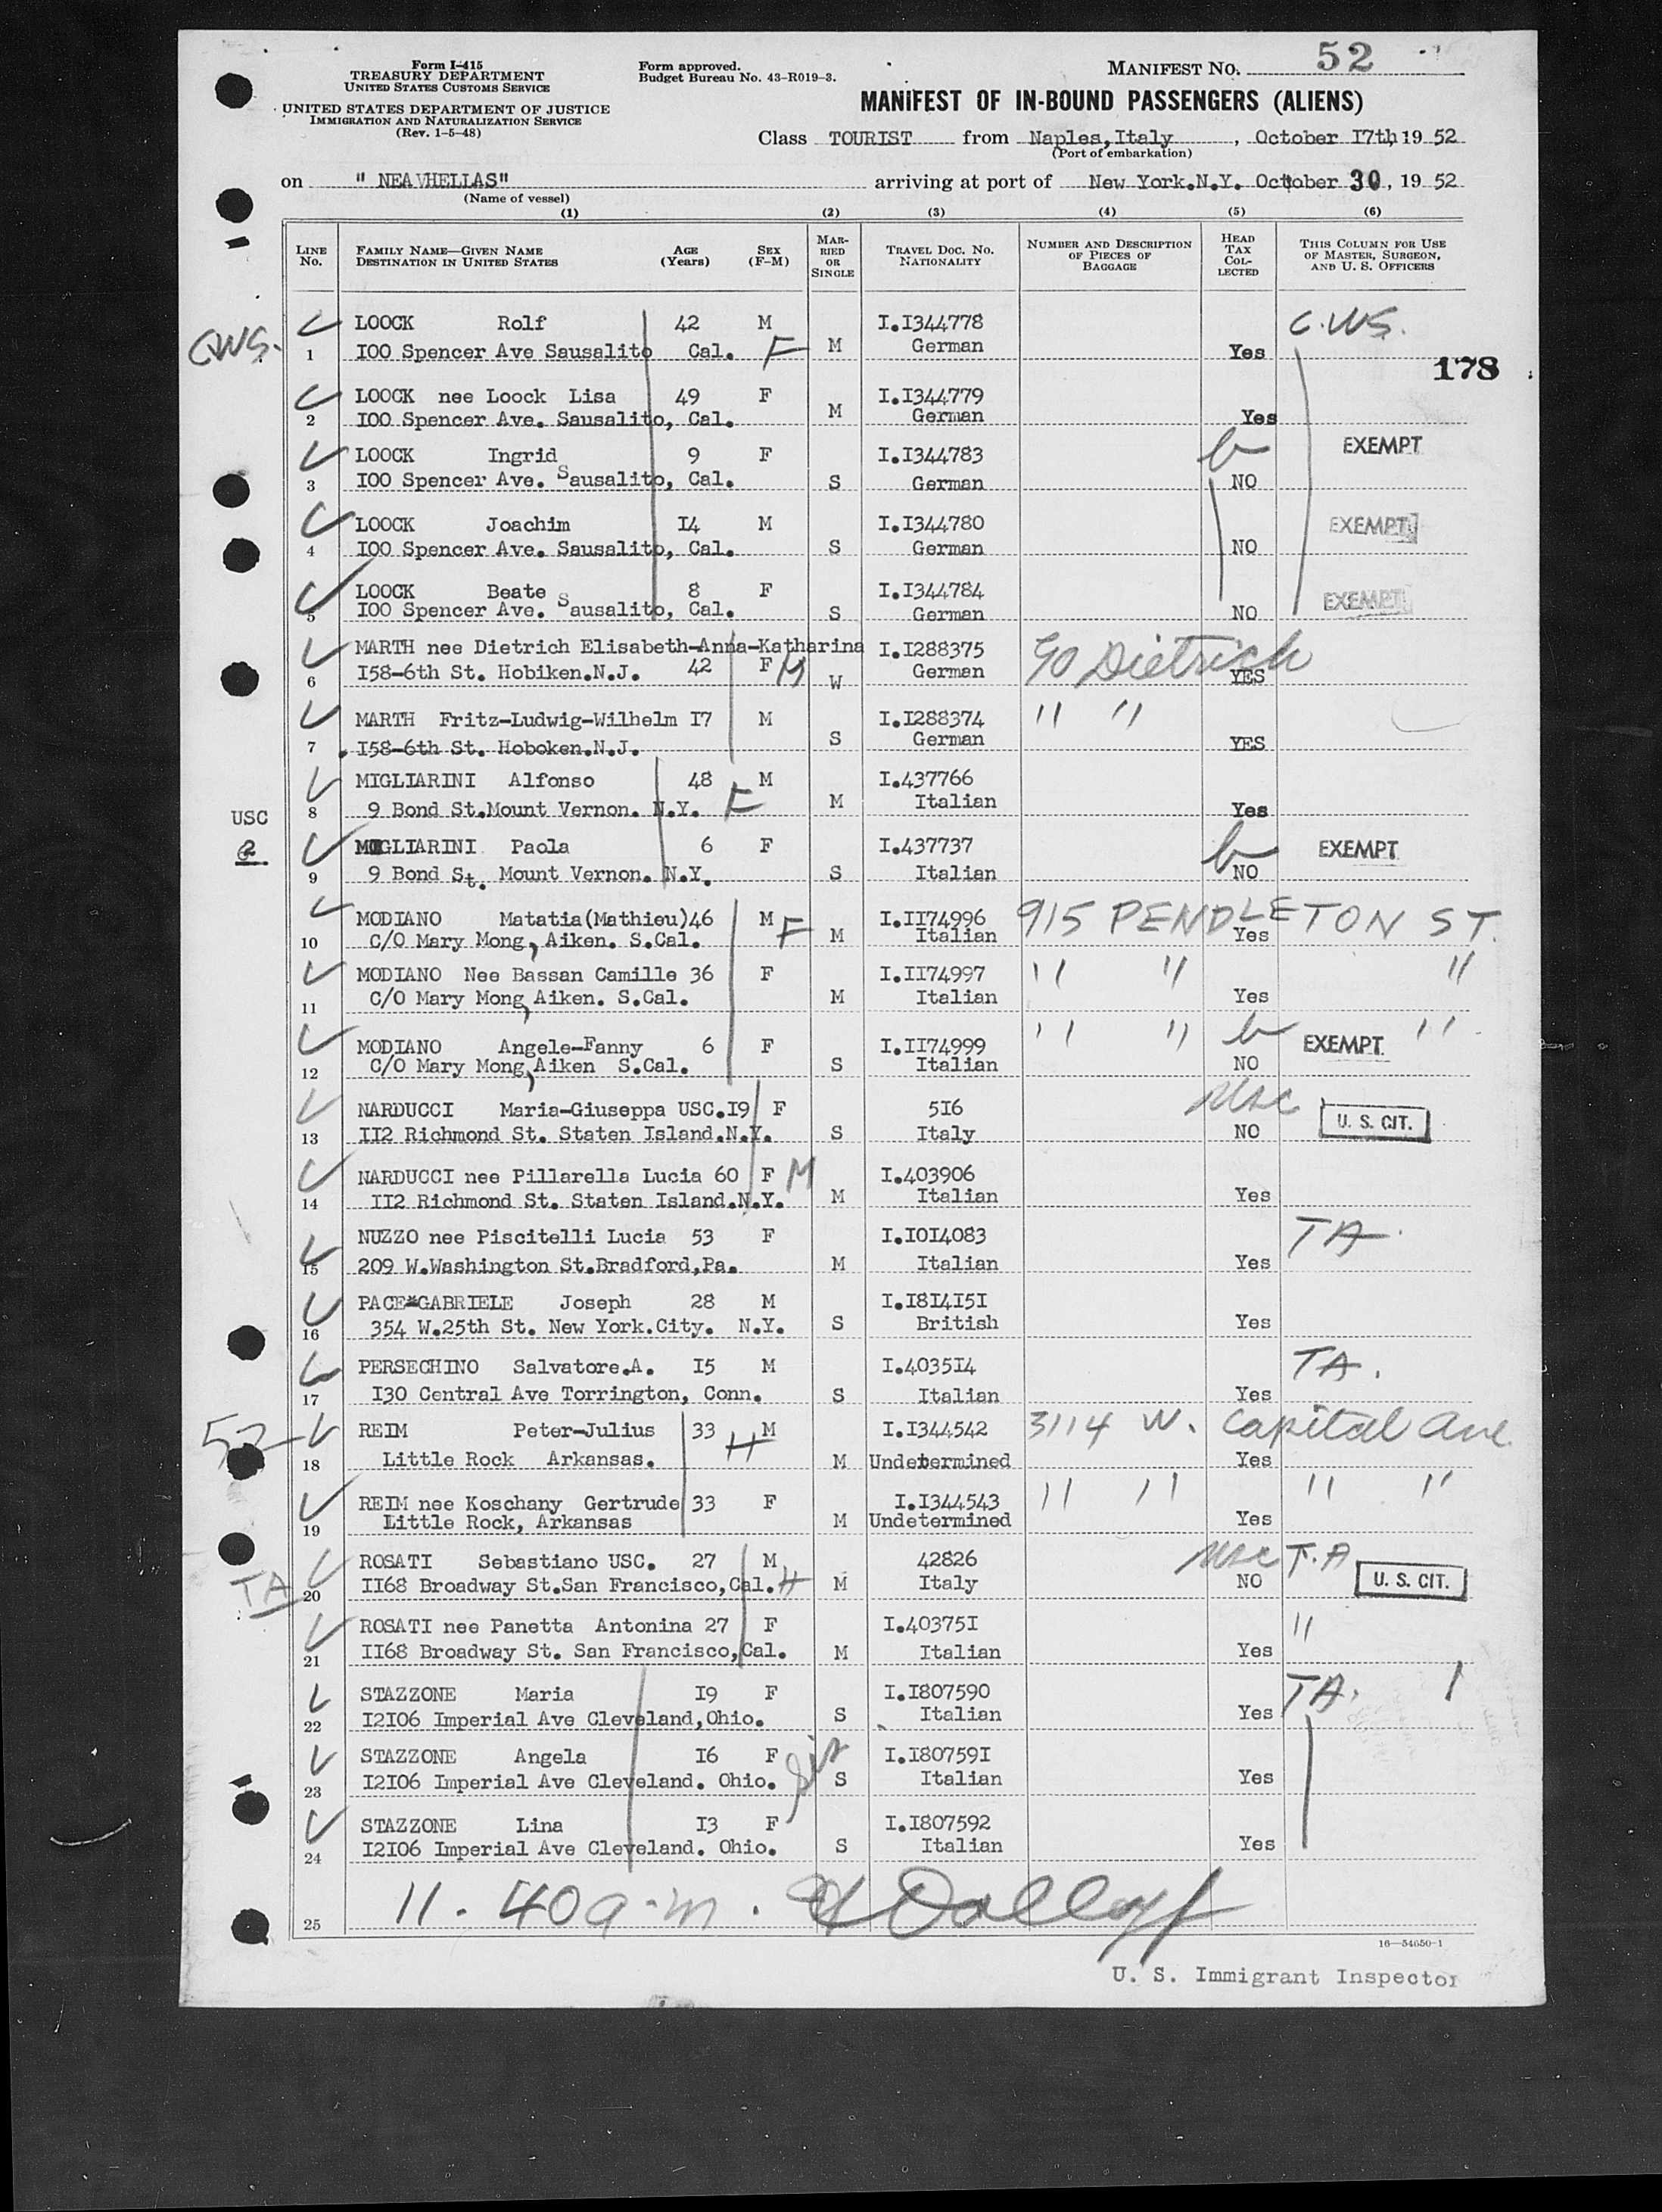 Form I-415
TREASURY DEPARTMENT
UNITED STATES CUSTOMS SERVICE
UNITED STATES DEPARTMENT OF JUSTICE
IMMIGRATION AND NATURALIZATION SERVICE
(Rev. 1-5-48)
Form approved.
Budget Bureau No. 43-R019-3.
MANIFEST NO. 52
MANIFEST OF IN-BOUND PASSENGERS (ALIENS)
Class TOURIST from Naples,Italy , October I7th, 19 52
(Port of embarkation)
on " NEA HELLAS" arriving at port of New York.N.Y. October 30, 19 52
(Name of vessel)
(1) (2) (3) (4) (5) (6)
LINE No. FAMILY NAME—GIVEN NAME DESTINATION IN UNITED STATES AGE (Years) SEX (F-M) MARRIED OR SINGLE TRAVEL DOC. NO. NATIONALITY NUMBER AND DESCRIPTION OF PIECES OF BAGGAGE HEAD TAX COLLECTED THIS COLUMN FOR USE OF MASTER, SURGEON, AND U. S. OFFICERS
LOOCK Rolf 42 M I.I344778 C.WS.
CWS. 1 I00 Spencer Ave Sausalito Cal. F M German Yes
178
LOOCK nee Loock Lisa 49 F I.I344779
2 I00 Spencer Ave. Sausalito, Cal. M German Yes
LOOCK Ingrid 9 F I.I344783 b EXEMPT
3 I00 Spencer Ave. Sausalito, Cal. S German NO
LOOCK Joachim I4 M I.I344780 EXEMPT
4 I00 Spencer Ave. Sausalito, Cal. S German NO
LOOCK Beate 8 F I.I344784 EXEMPT
5 I00 Spencer Ave. Sausalito, Cal. S German NO
MARTH nee Dietrich Elisabeth-Anna-Katharina I.I288375 Dietrich
6 I58-6th St. Hobiken.N.J. 42 F M W German YES
MARTH Fritz-Ludwig-Wilhelm I7 M I.I288374 " "
7 I58-6th St. Hoboken.N.J. S German YES
MIGLIARINI Alfonso 48 M I.437766
USC 8 9 Bond St.Mount Vernon. N.Y. F M Italian Yes
2 MIGLIARINI Paola 6 F I.437737 b EXEMPT
9 9 Bond St. Mount Vernon. N.Y. S Italian NO
MODIANO Matatia(Mathieu)46 M F I.II74996 915 PENDLETON ST.
10 C/O Mary Mong, Aiken. S.Cal. M Italian Yes
MODIANO Nee Bassan Camille 36 F I.II74997 " " "
11 C/O Mary Mong, Aiken. S.Cal. M Italian Yes
MODIANO Angele-Fanny 6 F I.II74999 " " b EXEMPT "
12 C/O Mary Mong, Aiken S.Cal. S Italian NO
NARDUCCI Maria-Giuseppa USC.I9 F 5I6 USC U. S. CIT.
13 II2 Richmond St. Staten Island.N.Y. S Italy NO
NARDUCCI nee Pillarella Lucia 60 F M I.403906
14 II2 Richmond St. Staten Island.N.Y. M Italian Yes
NUZZO nee Piscitelli Lucia 53 F I.I0I4083 TA
15 209 W.Washington St.Bradford,Pa. M Italian Yes
PACE*GABRIELE Joseph 28 M I.I8I4I5I
16 354 W.25th St. New York.City. N.Y. S British Yes
PERSECHINO Salvatore.A. I5 M I.4035I4 TA.
17 I30 Central Ave Torrington, Conn. S Italian Yes
52 REIM Peter-Julius 33 M H I.I344542 3114 W. Capital Ave.
18 Little Rock Arkansas. M Undetermined Yes
REIM nee Koschany Gertrude 33 F I.I344543 " " " "
19 Little Rock, Arkansas M Undetermined Yes
ROSATI Sebastiano USC. 27 M 42826 USC T.A
TA 20 II68 Broadway St.San Francisco,Cal. H M Italy NO U. S. CIT.
ROSATI nee Panetta Antonina 27 F I.40375I "
21 II68 Broadway St. San Francisco,Cal. M Italian Yes
STAZZONE Maria I9 F I.I807590 TA.
22 I2I06 Imperial Ave Cleveland,Ohio. S Italian Yes
STAZZONE Angela I6 F Sis I.I80759I
23 I2I06 Imperial Ave Cleveland. Ohio. S Italian Yes
STAZZONE Lina I3 F I.I807592
24 I2I06 Imperial Ave Cleveland. Ohio. S Italian Yes
25 11.40 a.m.
16—54650-1
U. S. Immigrant Inspector